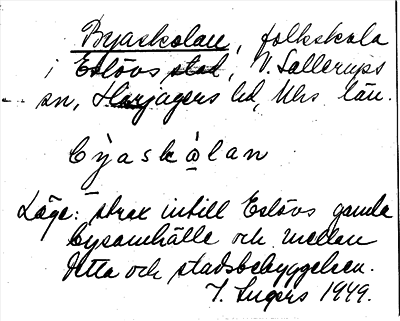 Byaskolan, folkskola
i Eslövs stad, V. Sallerups
sn, Harjagers hd, Mhs län.
býaskọ̀lan
Läge: strax intill Eslövs gamla
bysamhälle och mellan
detta och stadsbebyggelsen.
I. Ingers 1949.